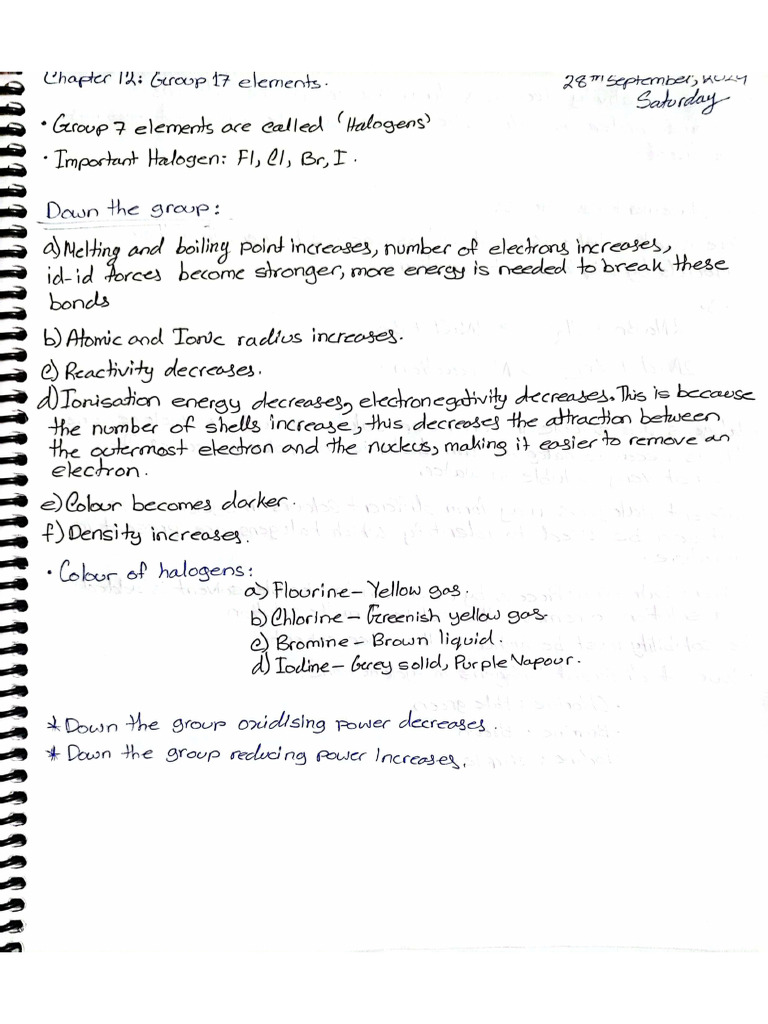 Chapter 12: Group 17 elements.
28th September, 2024
Saturday
• Group 7 elements are called 'Halogens'
• Important Halogen: Fl, Cl, Br, I.
Down the group:
a) Melting and boiling point increases, number of electrons increases,
id-id forces become stronger, more energy is needed to break these
bonds
b) Atomic and Ionic radius increases.
c) Reactivity decreases.
d) Ionisation energy decreases, electronegativity decreases. This is because
the number of shells increase, this decreases the attraction between
the outermost electron and the nucleus, making it easier to remove an
electron.
e) Colour becomes darker.
f) Density increases.
• Colour of halogens:
a) Flourine – Yellow gas.
b) Chlorine – Greenish yellow gas
c) Bromine – Brown liquid.
d) Iodine – Grey solid, Purple Vapour.
* Down the group oxidising power decreases.
* Down the group reducing power increases.